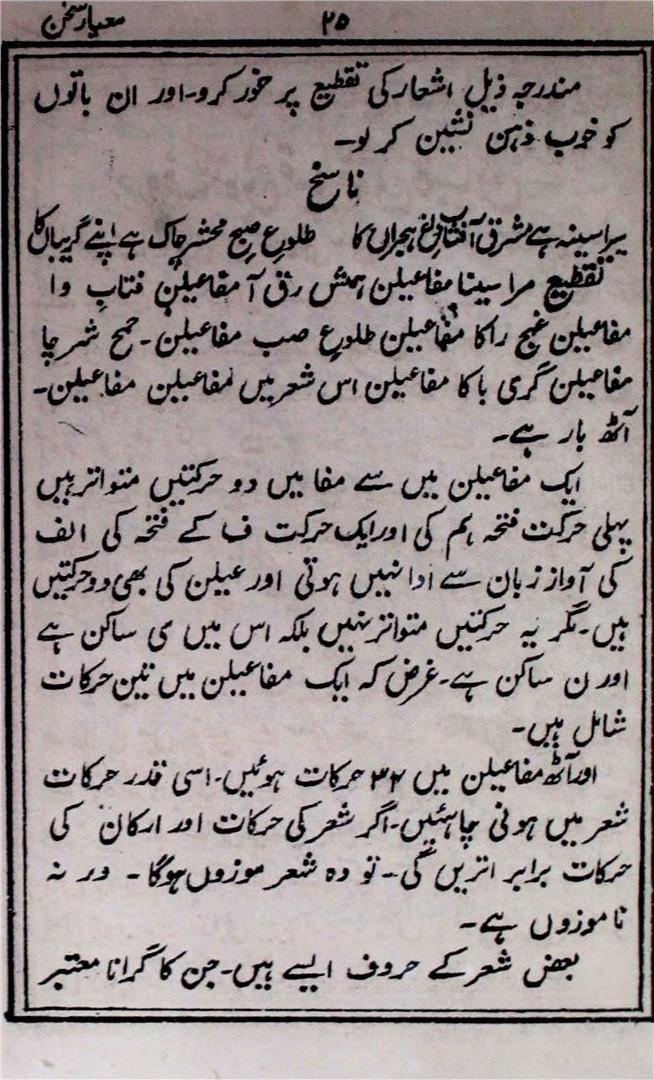 معیار سخن
۲۵
مندرجہ ذیل اشعار کی تقطیع پر خور کرو۔ اور ان باتوں
کو خوب ذہن نشین کر لو۔
ناسخ
میرا سینہ ہے مشرق آفتاب داغ ہجراں کا طلوع صبح محشر چاک ہے اپنے گریباں کا
تقطیع مرا سینا مفاعیلن ہمش رق آ مفاعیلن فتاب وا
مفاعیلن غہج را کا مفاعیلن طلوع صب مفاعیلن۔ حمح شر چا
مفاعیلن گری با کا مفاعیلن اس شعر میں مفاعیلن مفاعیلن۔
آٹھ بار ہے۔
ایک مفاعیلن میں سے مفا میں دو حرکتیں متواتر ہیں
پہلی حرکت فتحہ ہم کی اور ایک حرکت ف کے فتحہ کی الف
کی آواز زبان سے ادا نہیں ہوتی اور عیلن کی بھی دو حرکتیں
ہیں۔ مگر یہ حرکتیں متواتر نہیں بلکہ اس میں ی ساکن ہے
اور ن ساکن ہے۔ غرض کہ ایک مفاعیلن میں تین حرکات
شامل ہیں۔
اور آٹھ مفاعیلن میں ۳۲ حرکات ہوئیں۔ اسی قدر حرکات
شعر میں ہونی چاہئیں۔ اگر شعر کی حرکات اور ارکان کی
حرکات برابر اتریں گی۔ تو وہ شعر موزوں ہوگا۔ ورنہ
ناموزوں ہے۔
بعض شعر کے حروف ایسے ہیں۔ جن کا گرانا معتبر